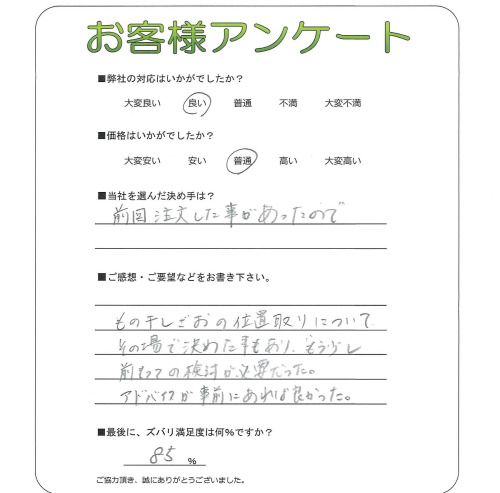 お客様アンケート
■弊社の対応はいかがでしたか?
大変良い 良い 普通 不満 大変不満
■価格はいかがでしたか?
大変安い 安い 普通 高い 大変高い
■当社を選んだ決め手は?
前回注文した事があったので
■ご感想・ご要望などをお書き下さい。
もの干しざおの位置取りについて
その場で決めた事もあり、もう少し
前もっての検討が必要だった。
アドバイスが事前にあれば良かった。
■最後に、ズバリ満足度は何%ですか?
85 %
ご協力頂き、誠にありがとうございました。